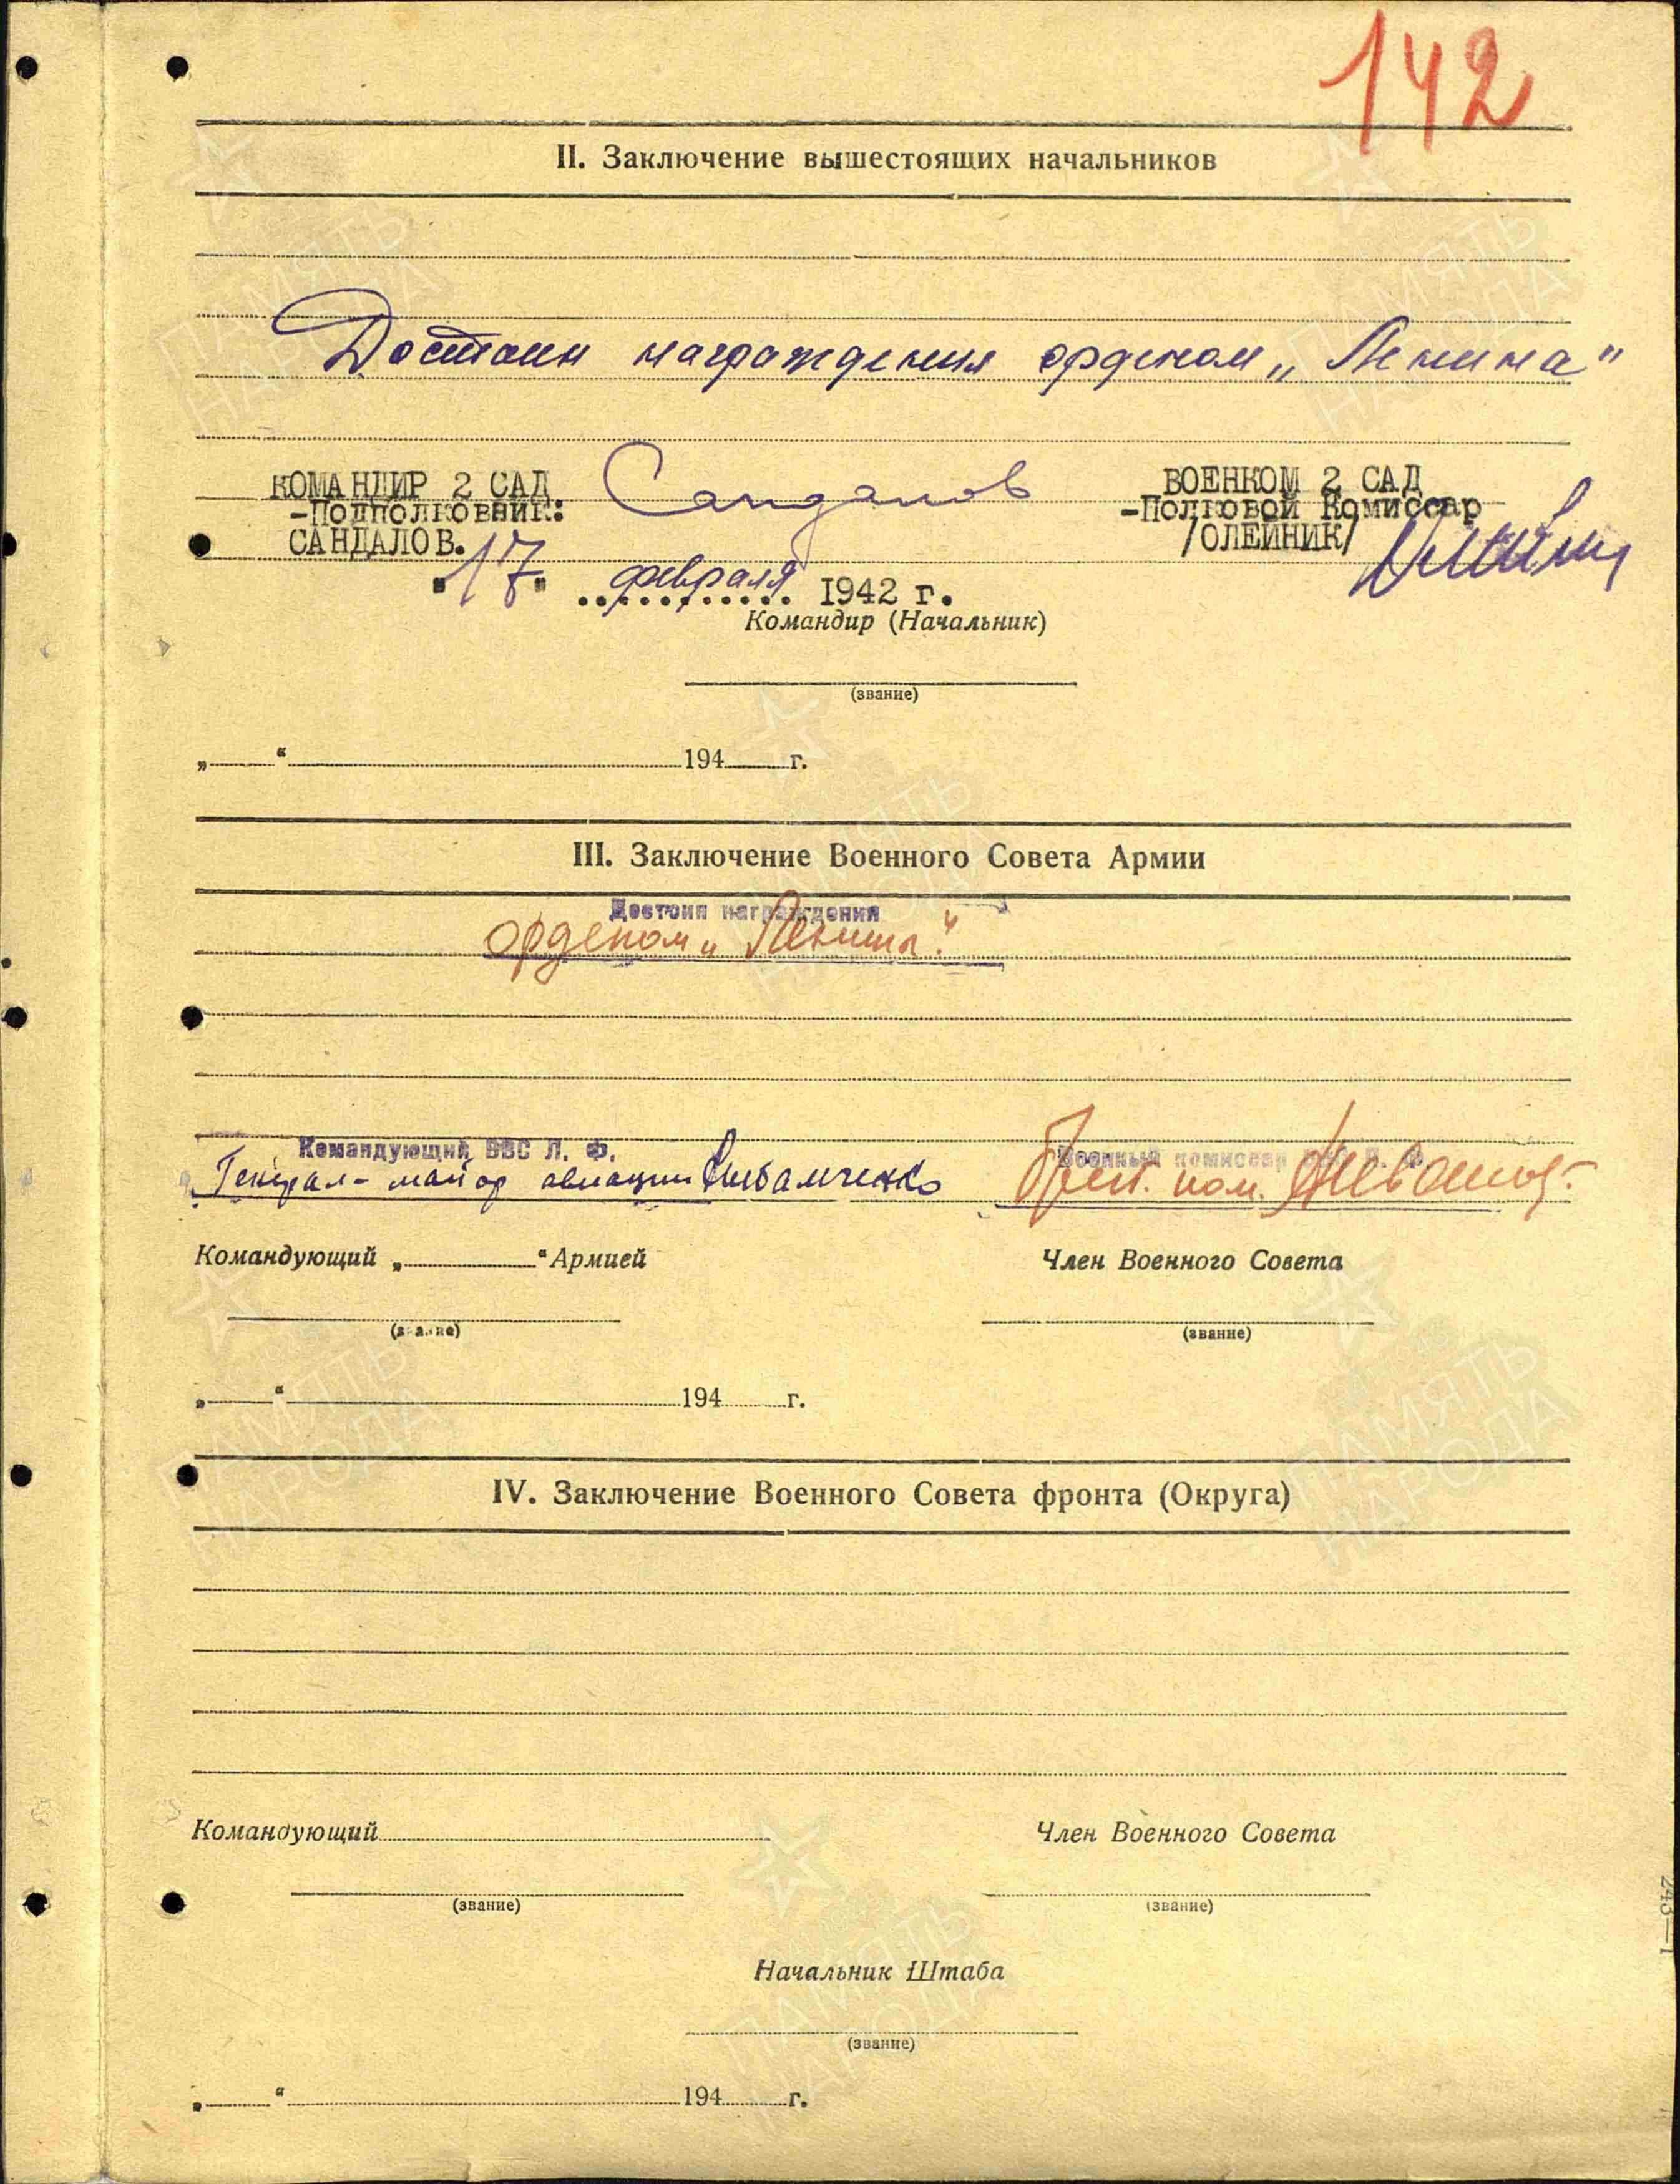 142
II. Заключение вышестоящих начальников
Достоин награждения орденом „Ленина"
КОМАНДИР 2 САД
-Подполковник:
САНДАЛОВ.
Сандалов
ВОЕНКОМ 2 САД
-Полковой Комиссар
/ОЛЕЙНИК/
"17" февраля 1942 г.
Командир (Начальник)
(звание)
„ “ 194 г.
III. Заключение Военного Совета Армии
Достоин награждения
орденом „Ленина."
Командующий ВВС Л. Ф.
Генерал-майор авиации
Военный комиссар
Командующий „ “ Армией
Член Военного Совета
(звание)
(звание)
„ “ 194 г.
IV. Заключение Военного Совета фронта (Округа)
Командующий
Член Военного Совета
(звание)
(звание)
Начальник Штаба
(звание)
„ “ 194 г.
243—1
ПАМЯТЬ
НАРОДА